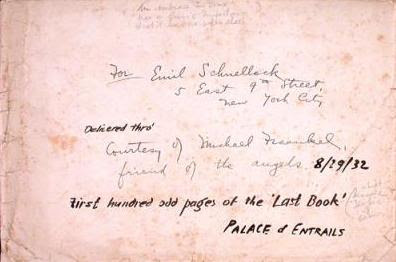 For Emil Schnellock
5 East 9th Street,
New York City
Delivered thro'
Courtesy of Michael Fraenkel,
friend of the angels 8/29/32
First hundred odd pages of the 'Last Book'
PALACE of ENTRAILS